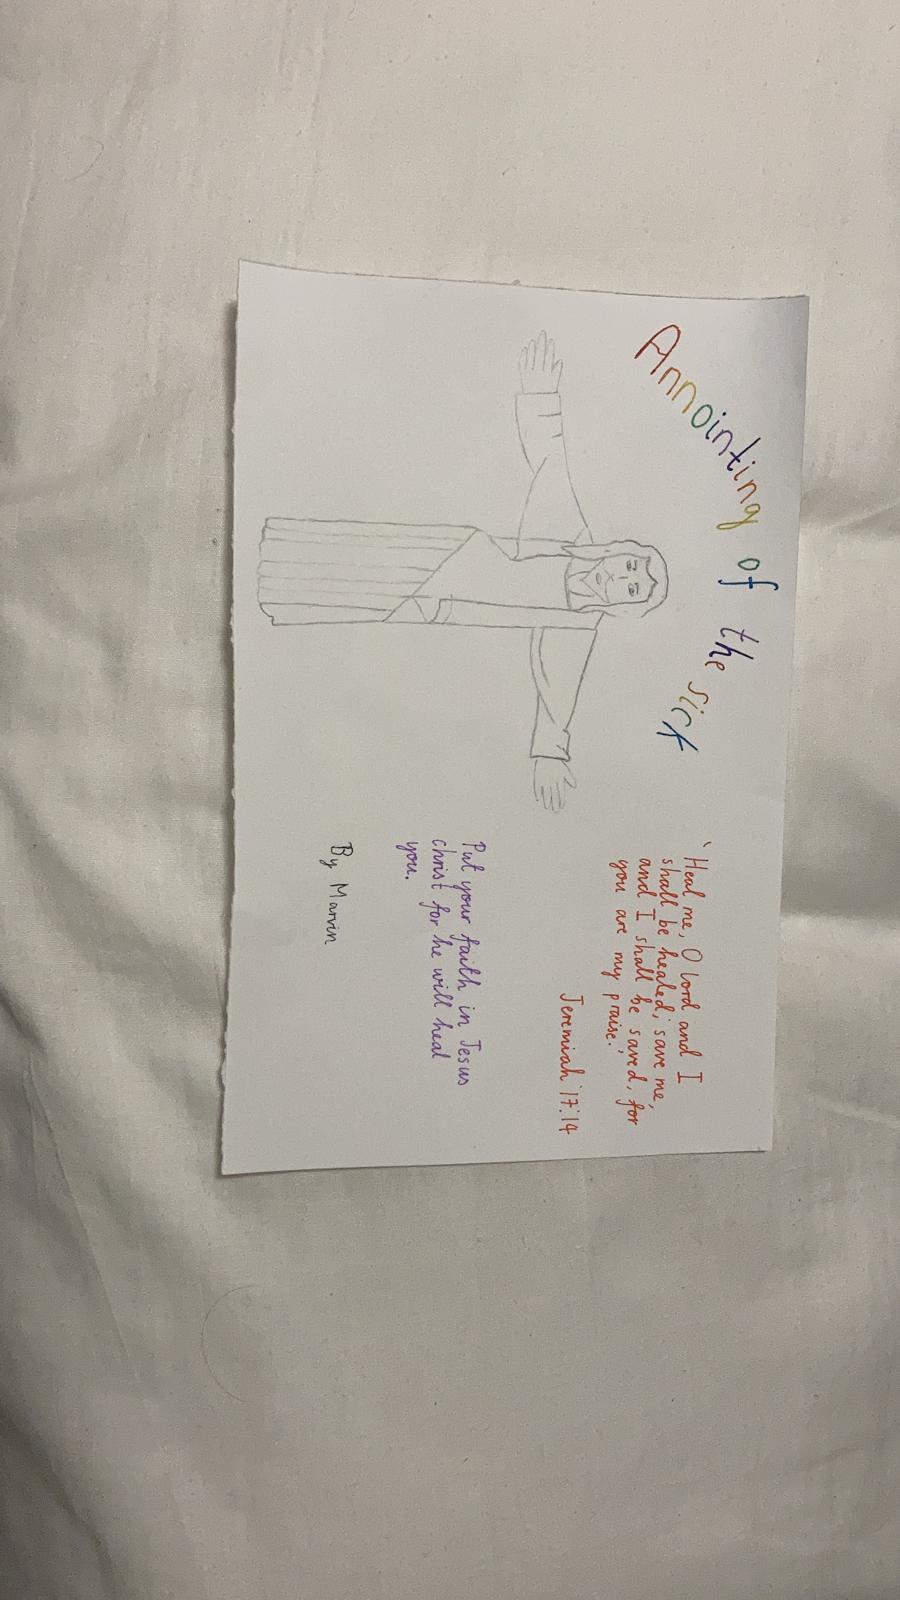 Annointing of the sick
'Heal me, O Lord and I
shall be healed; save me,
and I shall be saved, for
you are my praise.'
Jeremiah 17:14
Put your faith in Jesus
christ for he will heal
you.
By Marvin